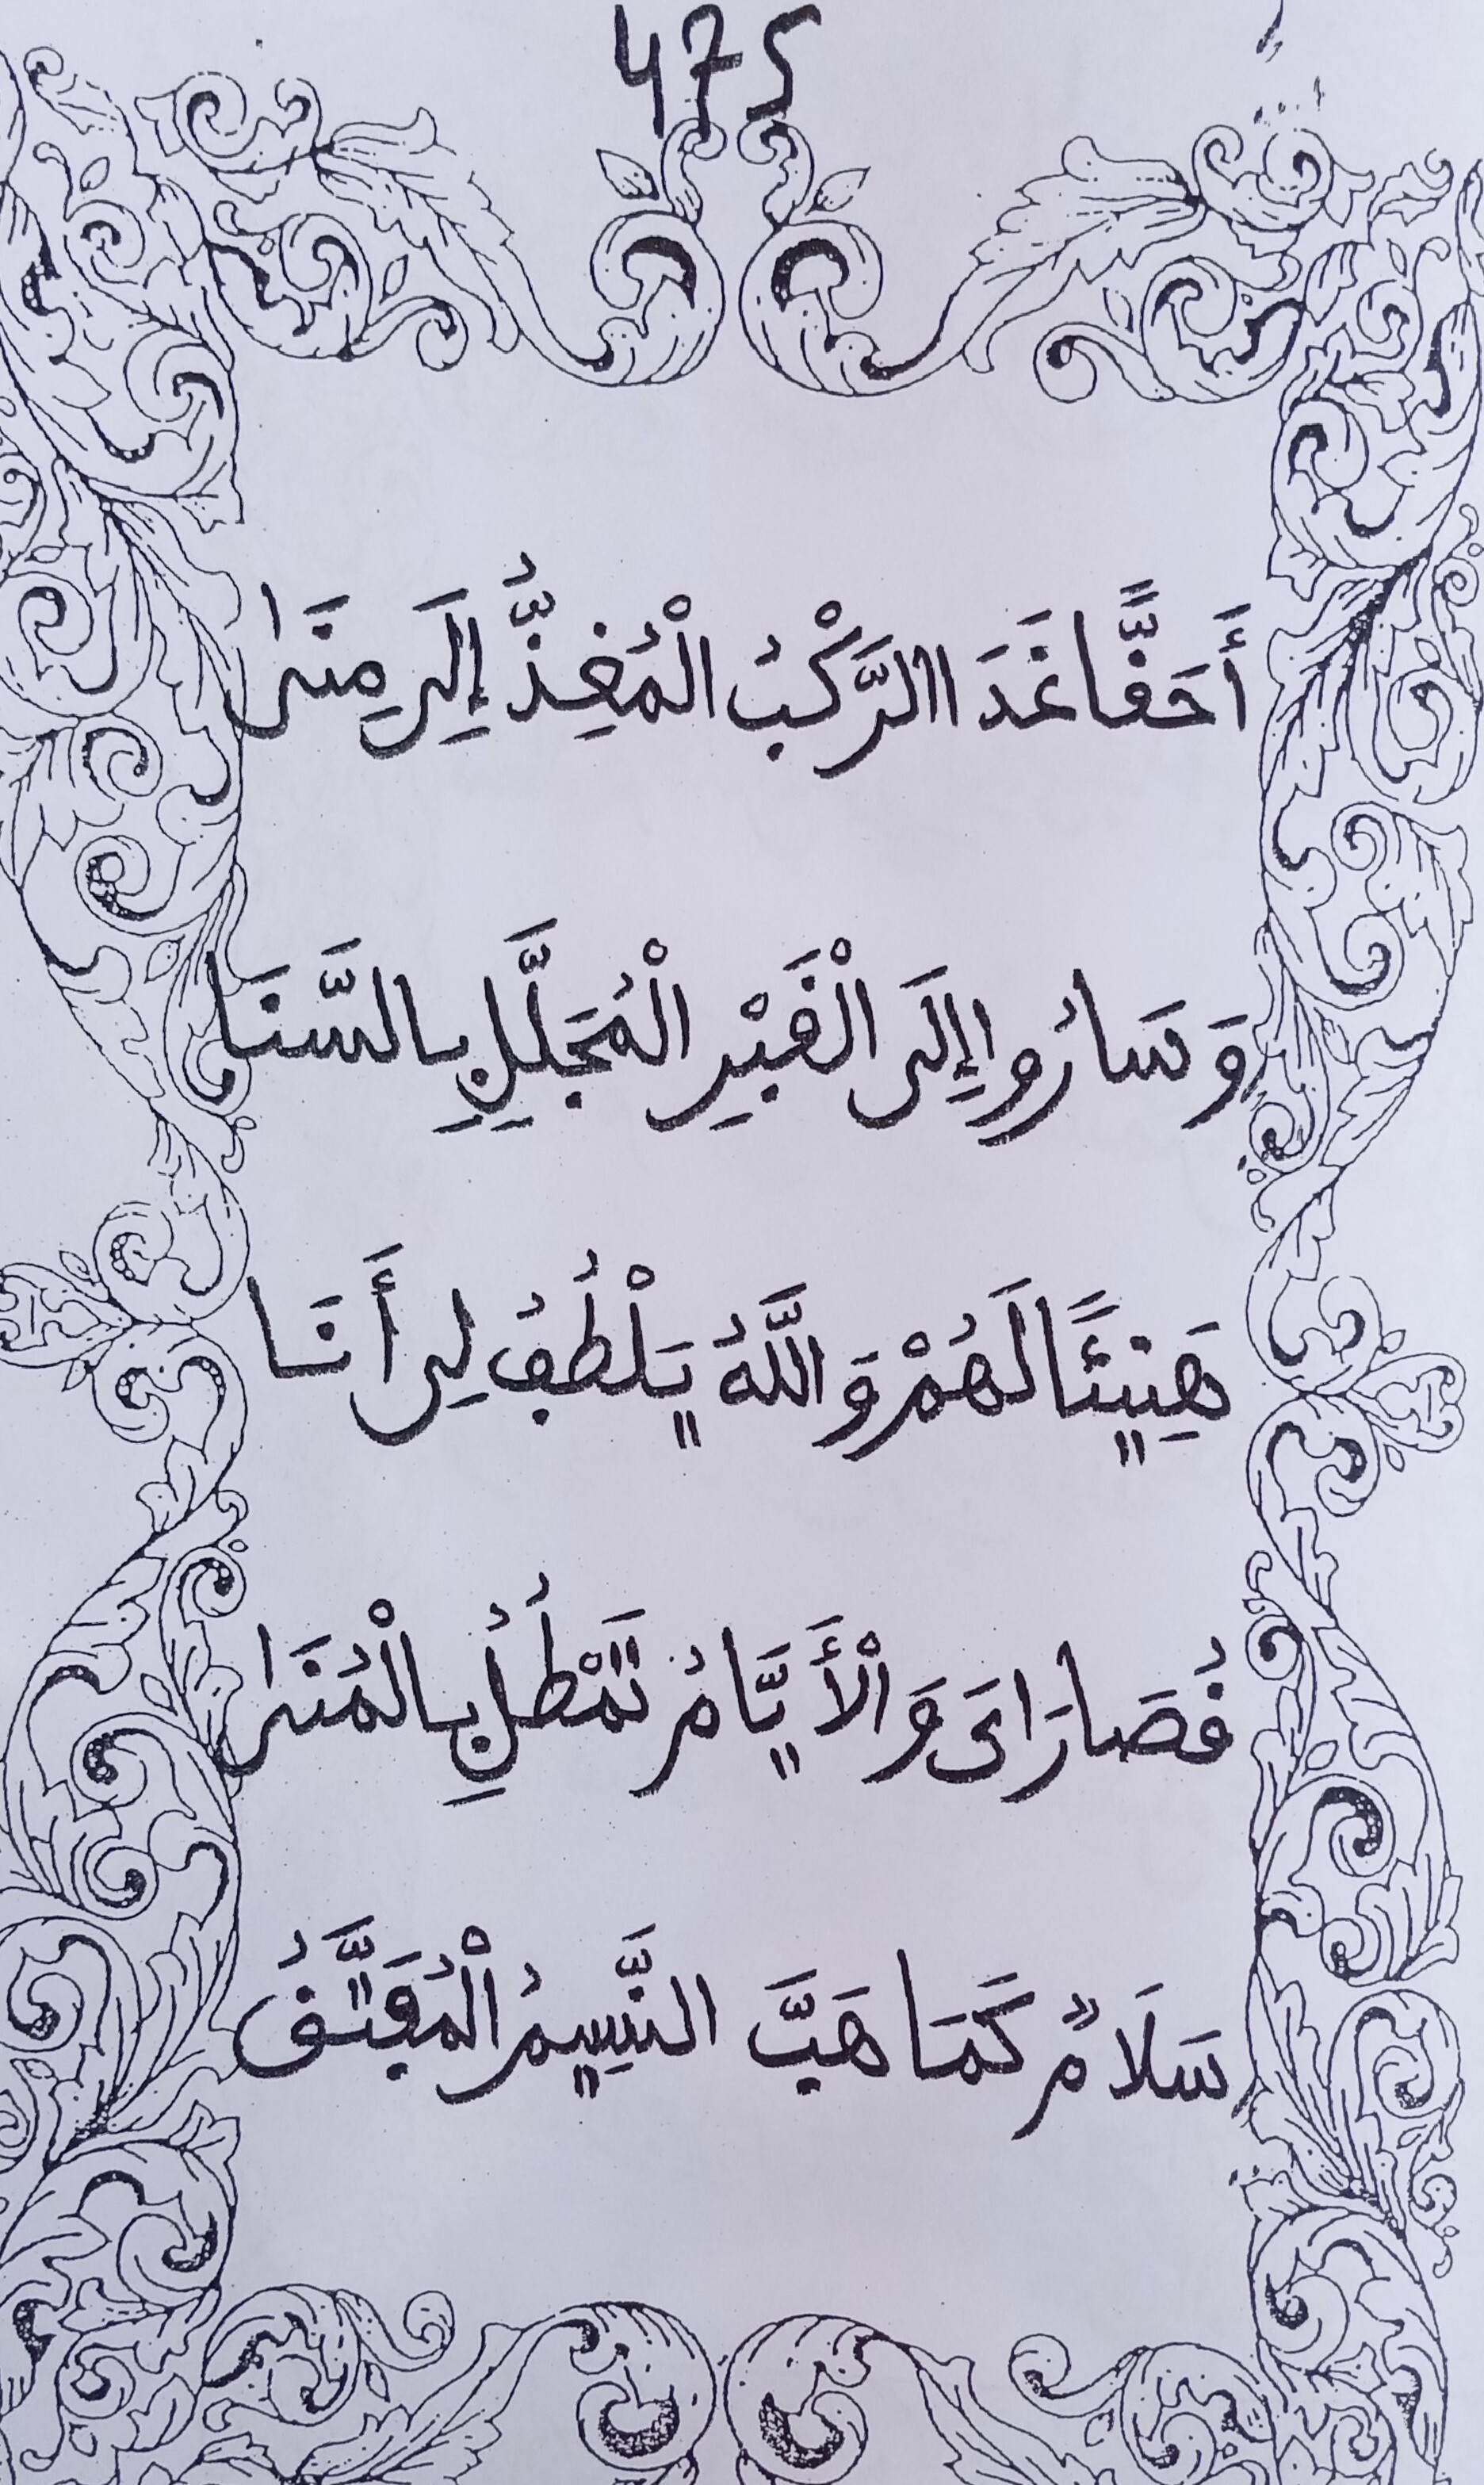 475
أَحَقًّا غَدَا الرَّكْبُ الْمُغِذُّ إِلَى مِنَى
وَسَارُوا إِلَى الْقَبْرِ الْمُجَلَّلِ بِالسَّنَا
هَنِيئًا لَهُمْ وَاللَّهُ يَلْطُفُ لِي أَنَا
قُصَارَاىَ وَالْأَيَّامُ تَمْطُلُ بِالْمُنَى
سَلَامٌ كَمَا هَبَّ النَّسِيمُ الْمُفَتَّقُ